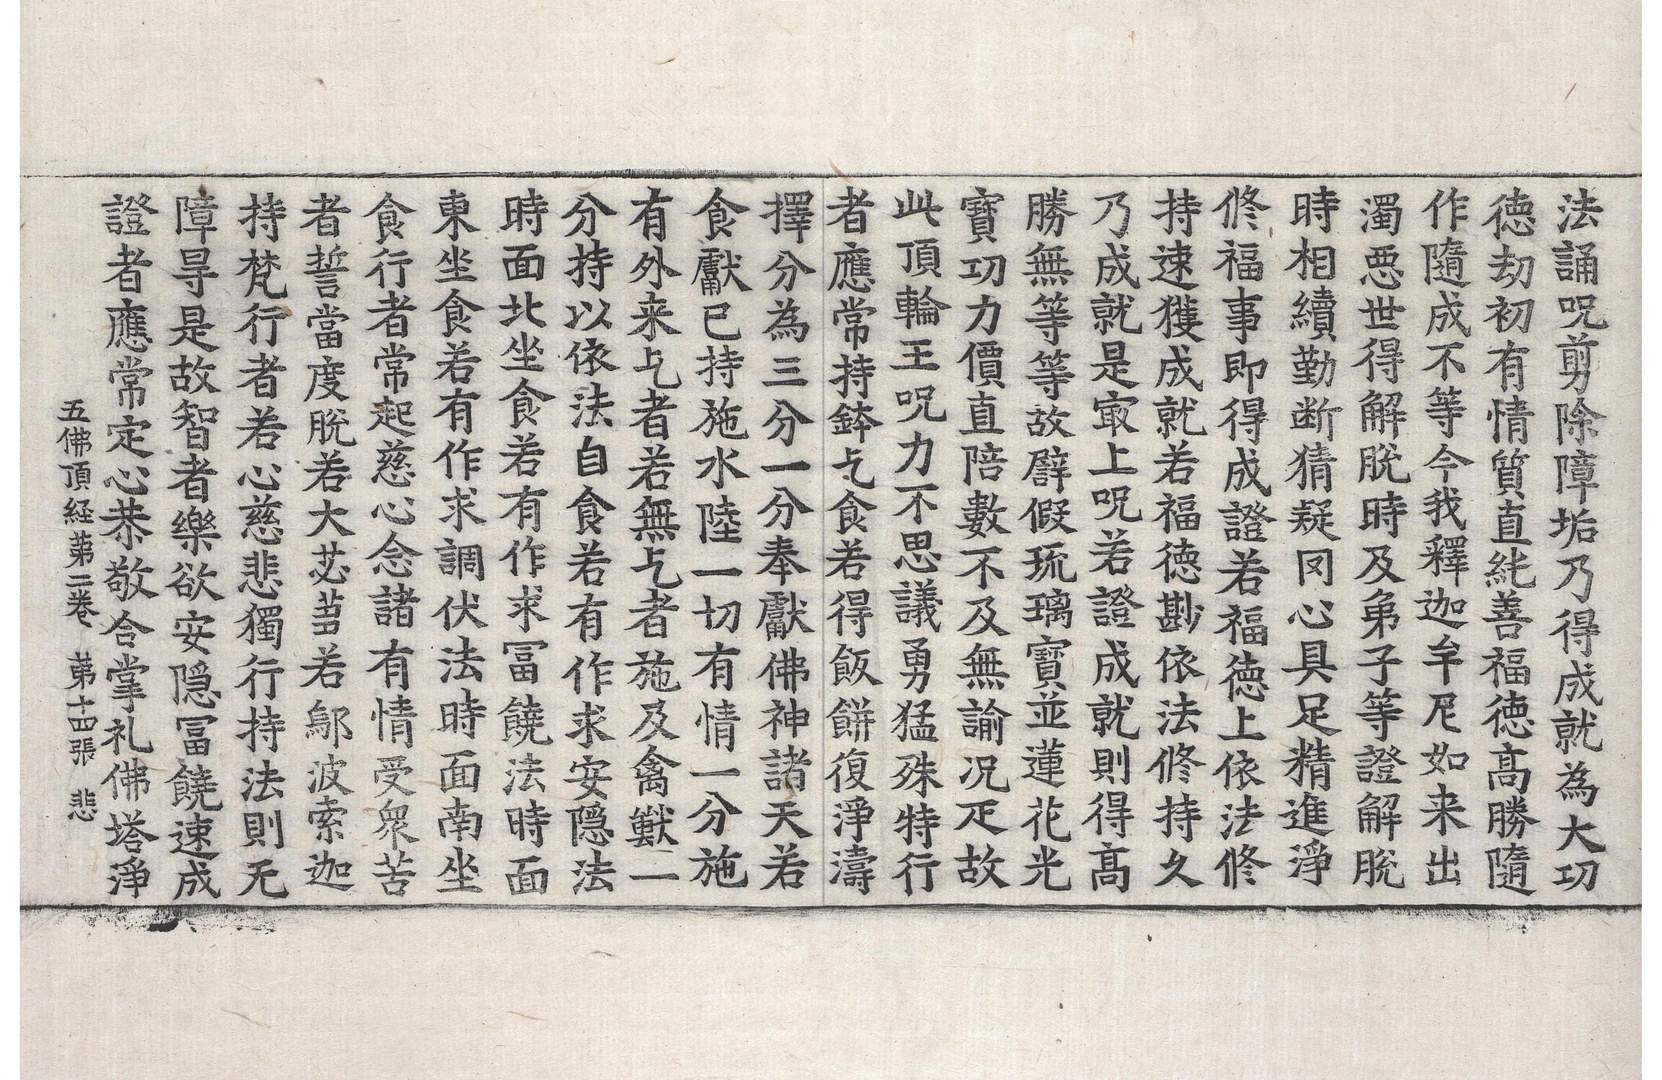 法誦呪剪除障垢乃得成就為大功
德劫初有情質直純善福德高勝隨
作隨成不等今我釋迦牟尼如来出
濁惡世得解脫時及弟子等證解脫
時相續勤断猜疑罔心具足精進淨
修福事即得成證若福德上依法修
持速獲成就若福德尠依法修持久
乃成就是㝡上呪若證成就則得高
勝無等等故譬假琉璃寶並蓮花光
寶功力價直陪數不及無諭况疋故
此頂輪王呪力不思議勇猛殊特行
者應常持鉢乞食若得飯餅復淨濤
擇分為三分一分奉獻佛神諸天若
食獻已持施水陸一切有情一分施
有外来乞者若無乞者施及禽獸一
分持以依法自食若有作求安隱法
時面北坐食若有作求冨饒法時面
東坐食若有作求調伏法時面南坐
食行者常起慈心念諸有情受衆苦
者誓當度脫若大苾蒭若鄔波索迦
持梵行者若心慈悲獨行持法則无
障㝵是故智者樂欲安隱冨饒速成
證者應常定心恭敬合掌礼佛塔淨
五佛頂経苐二巻 苐十四張 悲